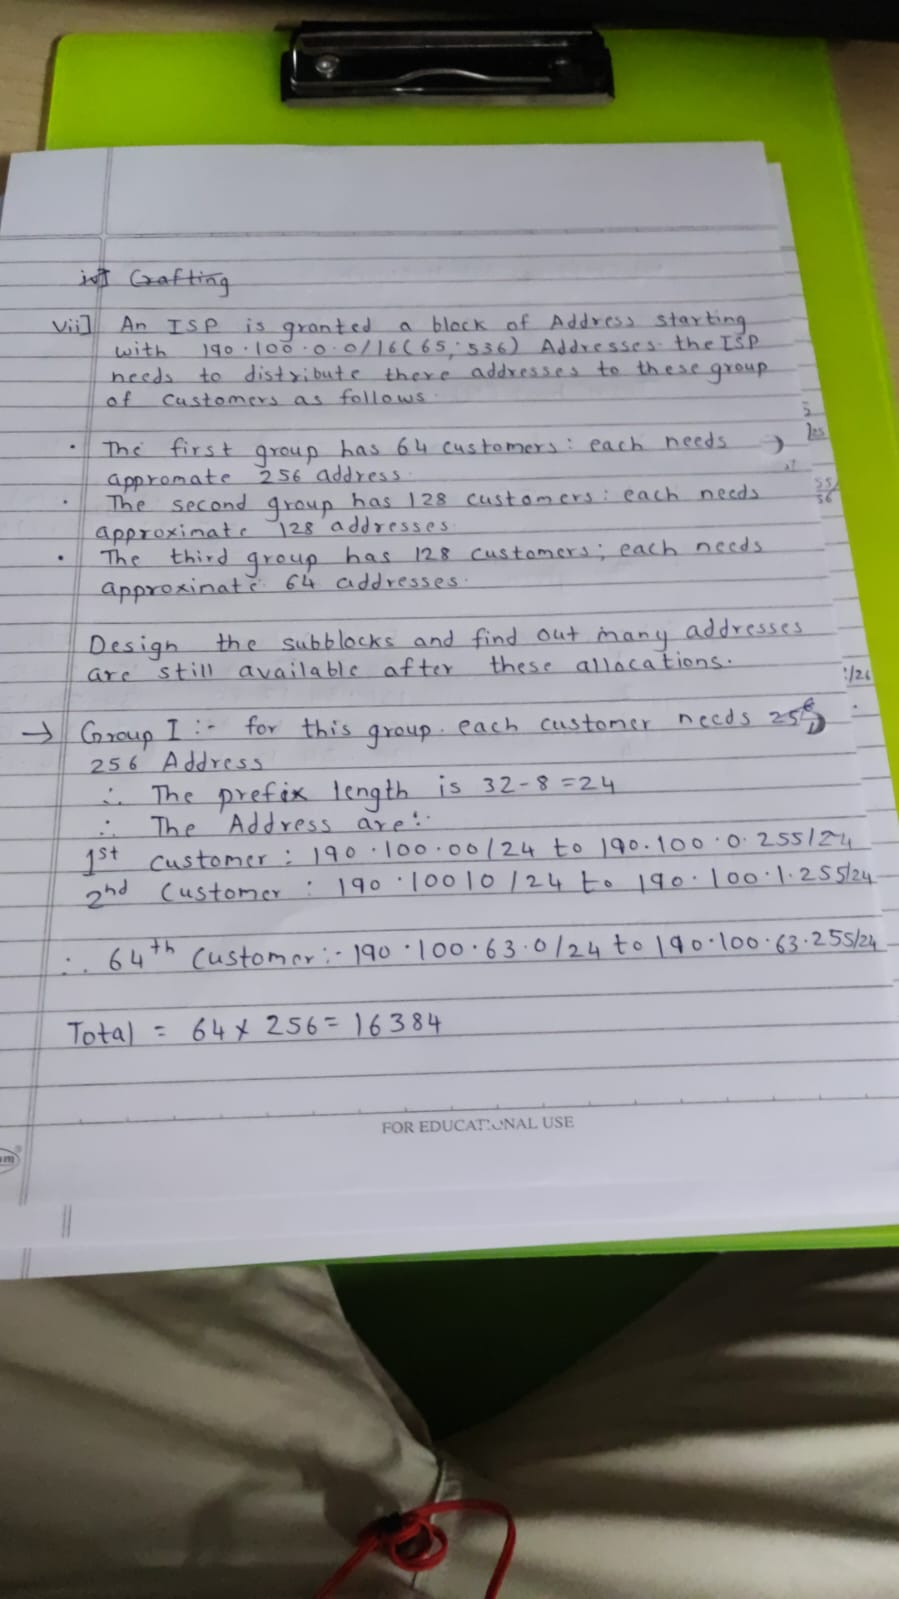 Grafting
vii] An ISP is granted a block of Address starting
with 190.100.0.0/16(65,536) Addresses. the ISP
needs to distribute there addresses to these group
of Customers as follows.
• The first group has 64 customers: each needs →
appromate 256 address.
• The second group has 128 customers: each needs
approximate 128 addresses.
• The third group has 128 customers; each needs
approxinate 64 addresses.
Design the subblocks and find out many addresses
are still available after these allocations.
:/26
→ Group I :- for this group. each customer needs
256 Address
∴ The prefix length is 32-8=24
∴ The Address are:-
1st customer : 190.100.00/24 to 190.100.0.255/24
2nd Customer : 190.10010/24 to 190.100.1.255/24
∴ 64th Customer:- 190.100.63.0/24 to 190.100.63.255/24
Total = 64 x 256 = 16384
FOR EDUCATIONAL USE